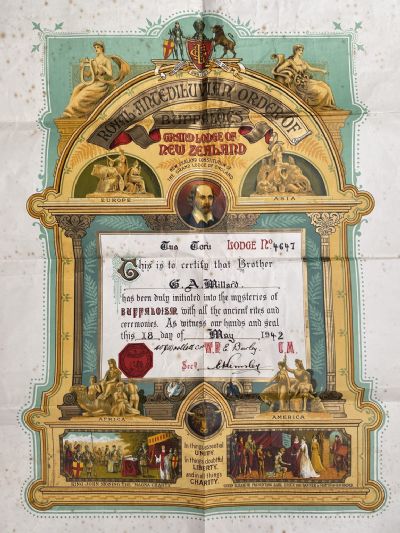 ROYAL ANTEDILUVIAN ORDER OF
BUFFALOES
GRAND LODGE OF
NEW ZEALAND
NEW ZEALAND CONSTITUTION OF
THE GRAND LODGE OF ENGLAND
EUROPE
ASIA
Tua Toru LODGE No 4647
This is to certify that Brother
G. A. Millard.
has been duly initiated into the mysteries of
BUFFALOISM with all the ancient rites and
ceremonies. As witness our hands and seal
this 18 day of May 1942
W.P. C.M.
Secy
AFRICA
AMERICA
In things essential
UNITY
In things doubtful
LIBERTY,
and in all things
CHARITY.
KING JOHN SIGNING THE MAGNA CHARTA